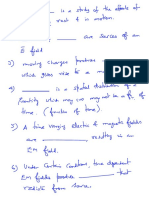 ____ is a study of the effects of
rest & in motion.
____ are sources of an
E field.
3) moving charges produce ____
which gives rise to a m____
4) ____ is a spatial distribution of a
quantity which may/may not be a fn. of
time. (function of time)
5) A time varying electric & magnetic fields
are ____ resulting in an
EM field.
6) Under certain conditions, time dependent
EM fields produce ____ that
radiate from source.